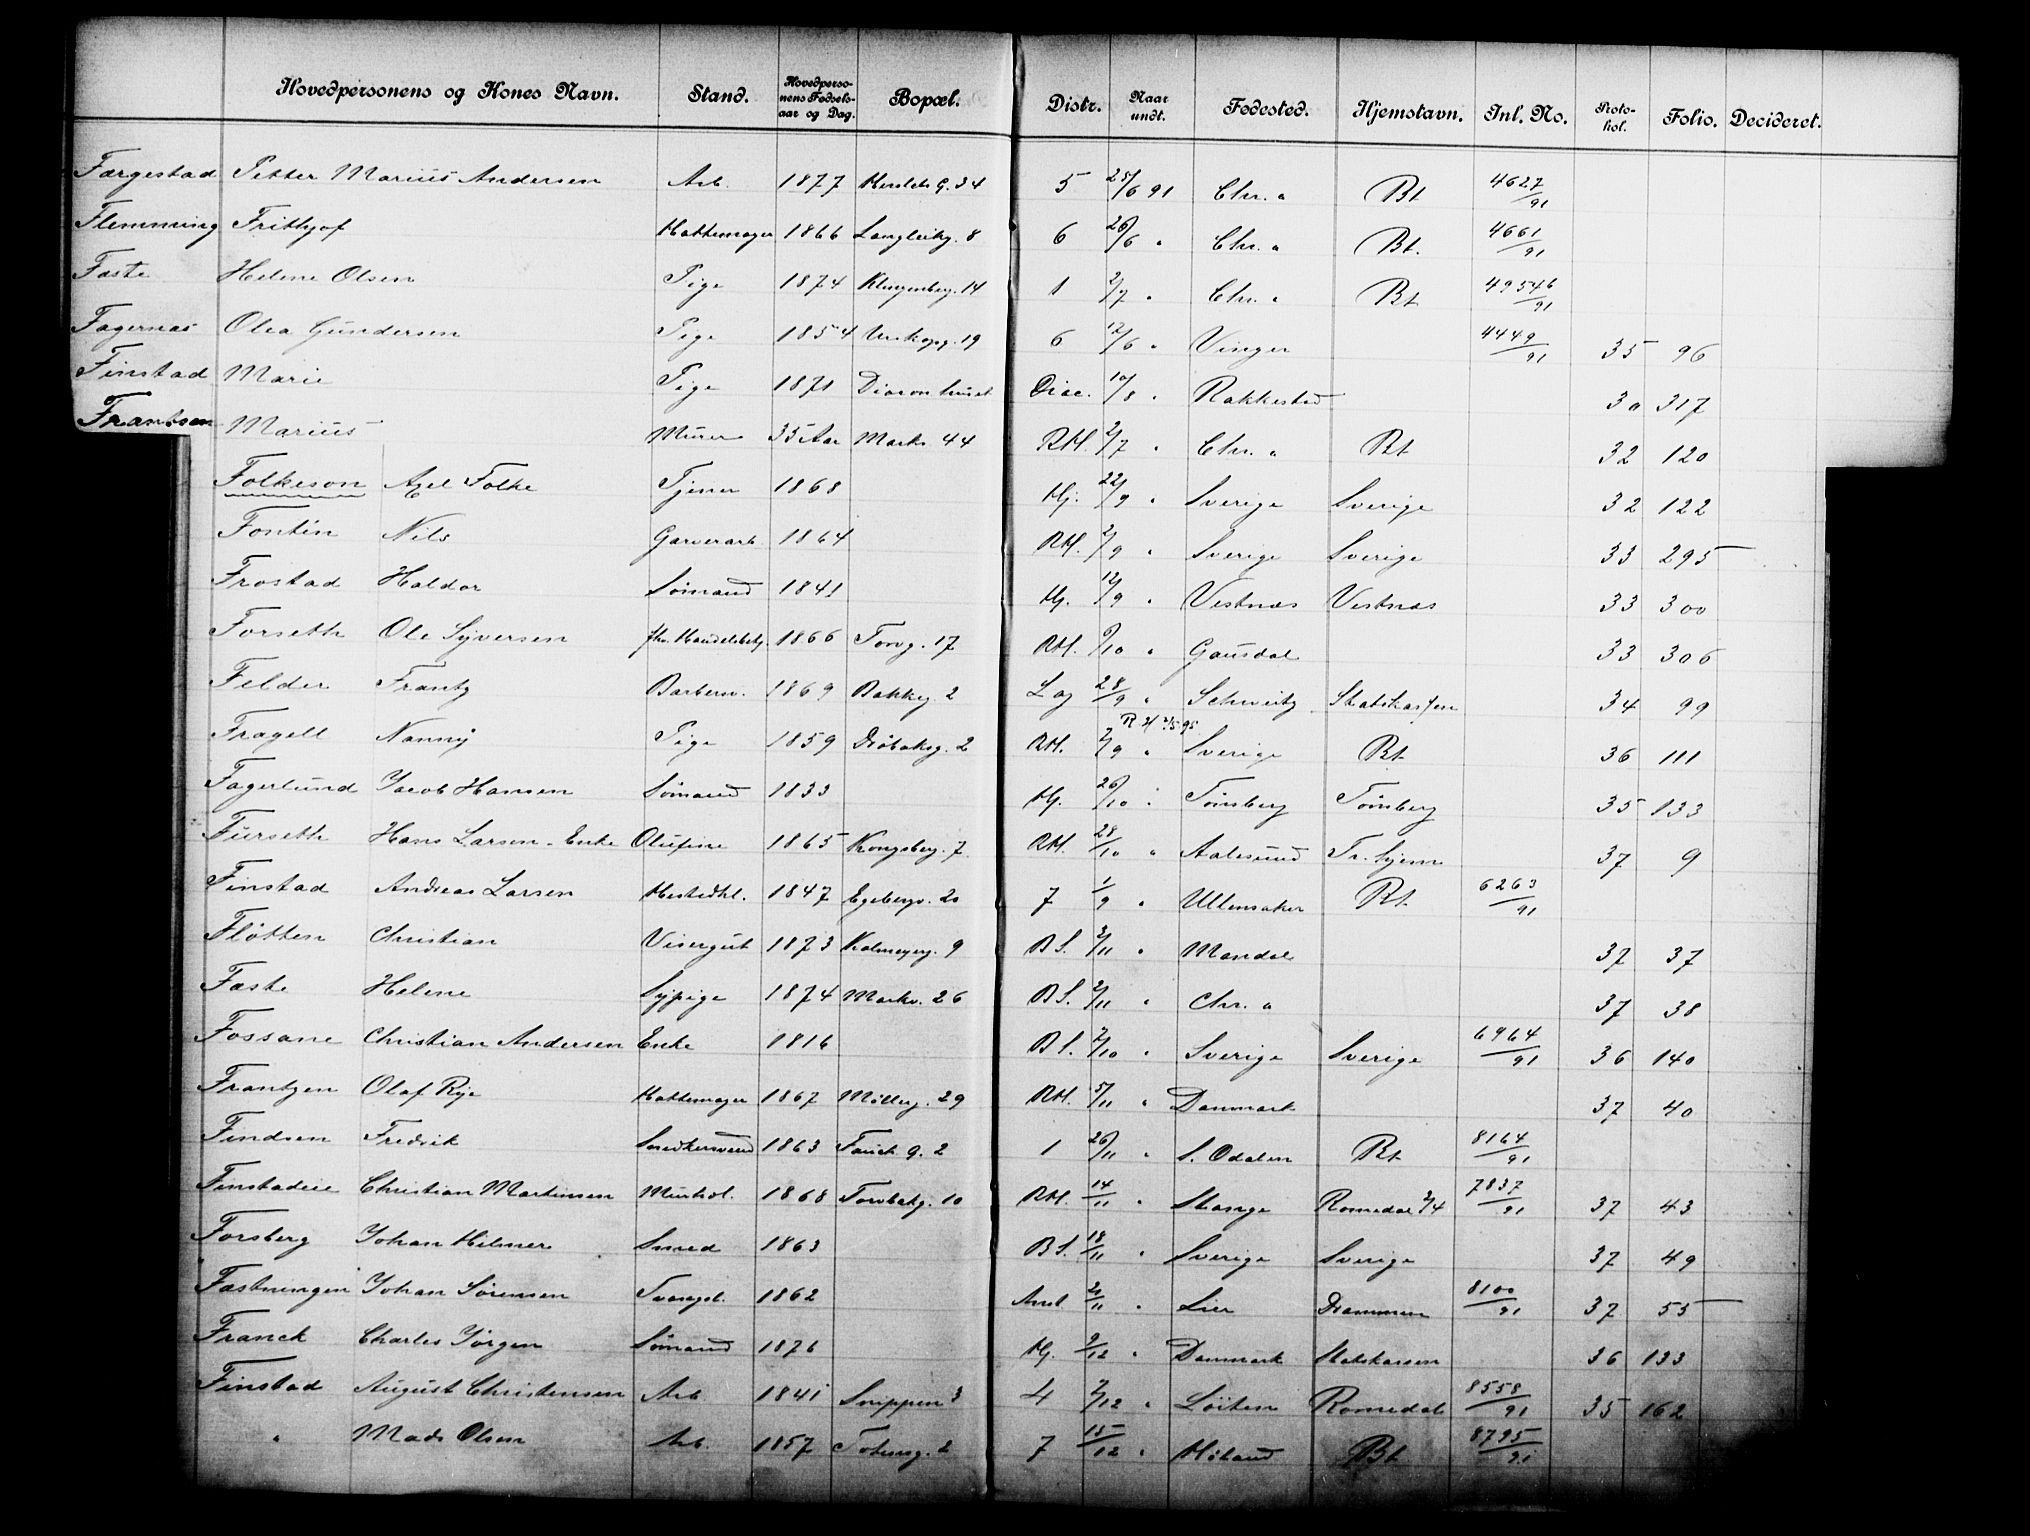 Hovedpersonens og Kones Navn. Stand. Hovedpersonens Fødselsaar og Dag. Bopæl. Distr. Naar undt. Fødested. Hjemstavn. Inl. No. Protokol. Folio. Decideret.
Færgestad Petter Marius Andersen Arb. 1877 Herslebs G. 34 5 25/6 91 Chr. a Bt 4627/91
Flemming Frithjof Hattemager 1866 Langleikg. 8 6 26/6 " Chr. a Bt. 4661/91
Faste Helene Olsen Pige 1874 Klingenbg. 14 1 2/7 " Chr. a Bt 49546/91
Fagernæs Olea Gundersen Pige 1854 19 6 12/6 " Vinger 4449/91 35 96
Finstad Marie Pige 1871 Diaconhuset Diac. 10/8 " Rakkestad 30 317
Frantsen Marius Murer 35 Aar Markv. 44 RH. 2/7 " Chr. a Bt 32 120
Folkeson Axel Folke Tjener 1868 Hj. 22/9 " Sverige Sverige 32 122
Fontin Nils Garverarb. 1864 RH. 2/9 " Sverige Sverige 33 295
Frostad Haldor Sömand 1841 Hj. 12/9 " Vestnæs Vestnæs 33 300
Forseth Ole Syversen fhv. Handelsbetj. 1866 Torvg. 17 RH. 9/10 " Gausdal 33 306
Felder Frantz Barbersv. 1869 Bakkeg 2 Lag 28/9 " Schweitz Statskassen 34 99
Fragell Nanny Pige 1859 Dröbaksg. 2 RH. 2/9 " Sverige Bt 36 111
Fagerlund Jacob Hansen Sömand 1833 Hj. 26/10 " Tönsberg Tönsberg 35 133
Furseth Hans Larsen. Enke Olufine 1865 Kongsberg. 7. RH. 28/10 " Aalesund Tr.hjem 37 9
Finstad Andreas Larsen Hestedhl. 1847 Egebergv. 20 7 1/9 " Ullensaker Bt 6263/91
Flötten Christian Visergut 1873 Kalmeyerg. 9 BS. 3/11 " Mandal 37 37
Faste Helene Sypige 1874 Markv. 26 BS. 2/11 " Chr. a 37 38
Fossane Christian Andersen Enke 1816 BS. 2/10 " Sverige Sverige 6964/91 36 140
Frantzen Olaf Rye Hattemager 1867 Möllerg. 29 RH. 5/11 " Danmark 37 40
Findsen Fredrik Snedkersvend 1863 Fauch. g. 2 1 26/11 " S. Odalen Bt 8164/91
Finstadeie Christian Martinsen Murhdl. 1868 Torvbakg. 10 RH. 14/11 " Stange Romedal 3/4 7837/91 37 43
Forsberg Johan Hilmer Smed 1863 BS. 18/11 " Sverige Sverige 37 49
Fastningen Johan Sörensen 1862 Anst 21/11 " Lier Drammen 8100/91 37 55
Franck Charles Jörgen Sömand 1876 Hj. 9/12 " Danmark Statskassen 36 133
Finstad August Christensen Arb. 1841 Snippen 3 4 2/12 " Löiten Romedal 8558/91 35 162
" Mads Olsen Arb. 1857 Totensg. 2 7 15/12 " Höland Bt 8795/91